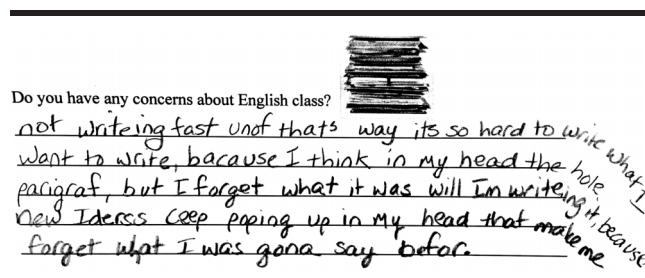 Do you have any concerns about English class?
not writeing fast unof thats way its so hard to write what I
want to write, bacause I think in my head the hole
parigraf, but I forget what it was will Im writeing it, because
new Iderss ceep poping up in my head that make me
forget what I was gona say befor.